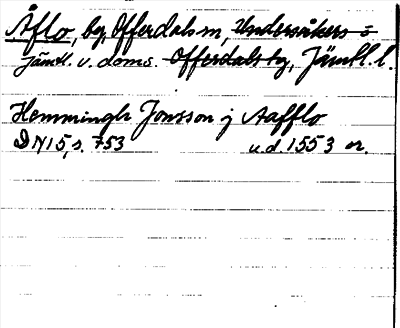 Åflo, by, Offerdals sn, Undersåkers o
Jämtl. v. doms. Offerdals tg, Jämtl. l.
Hemmingh Jonsson j Aafflo
DN 15, s. 753 u.d. 1553 or.